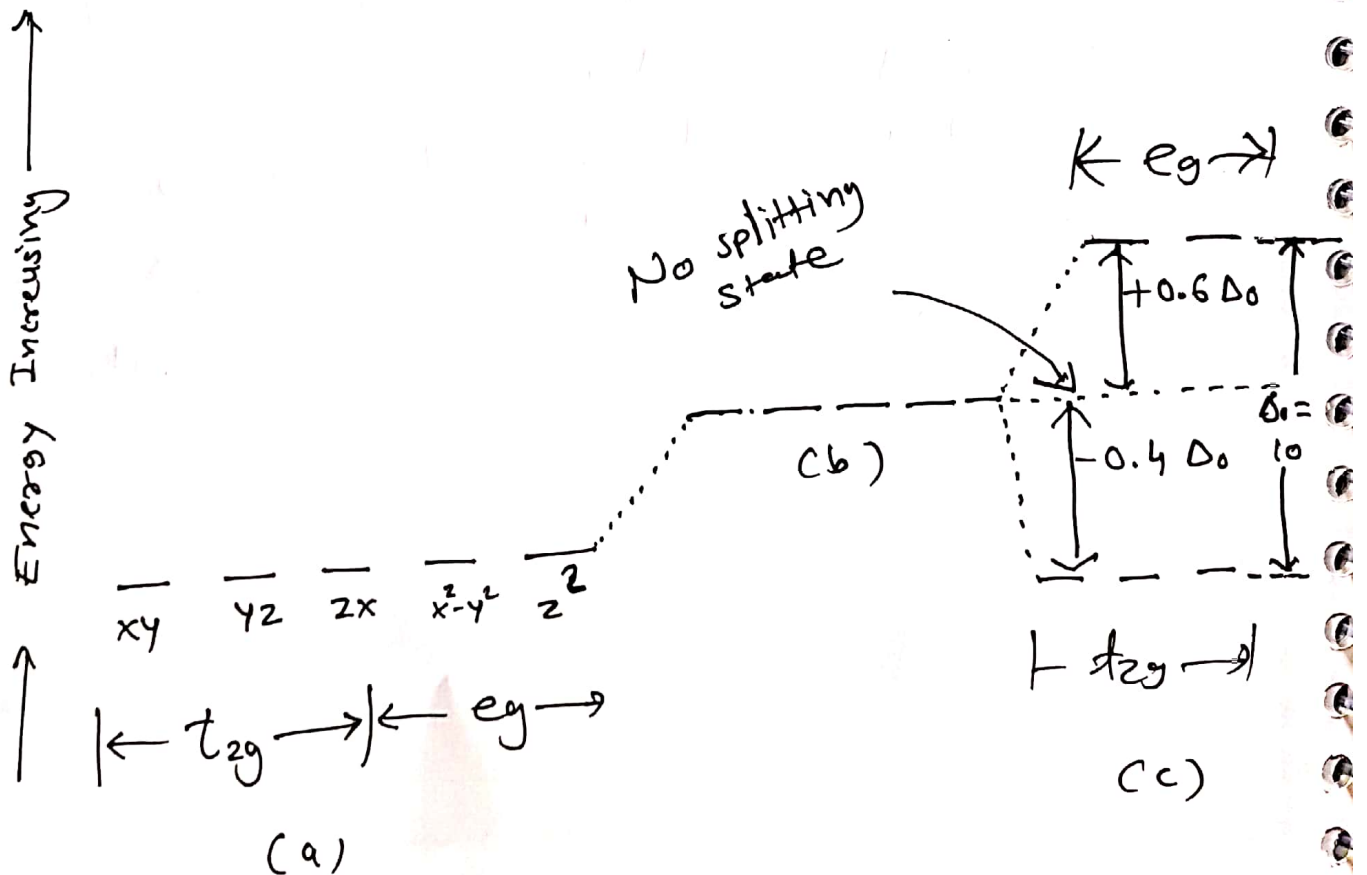 Energy Increusing
K eg
No splitting
state
+0.6 Δo
Δo =
10
-0.4 Δo
(b)
xy yz zx x²-y² z²
t2g eg
t2g
(c)
(a)